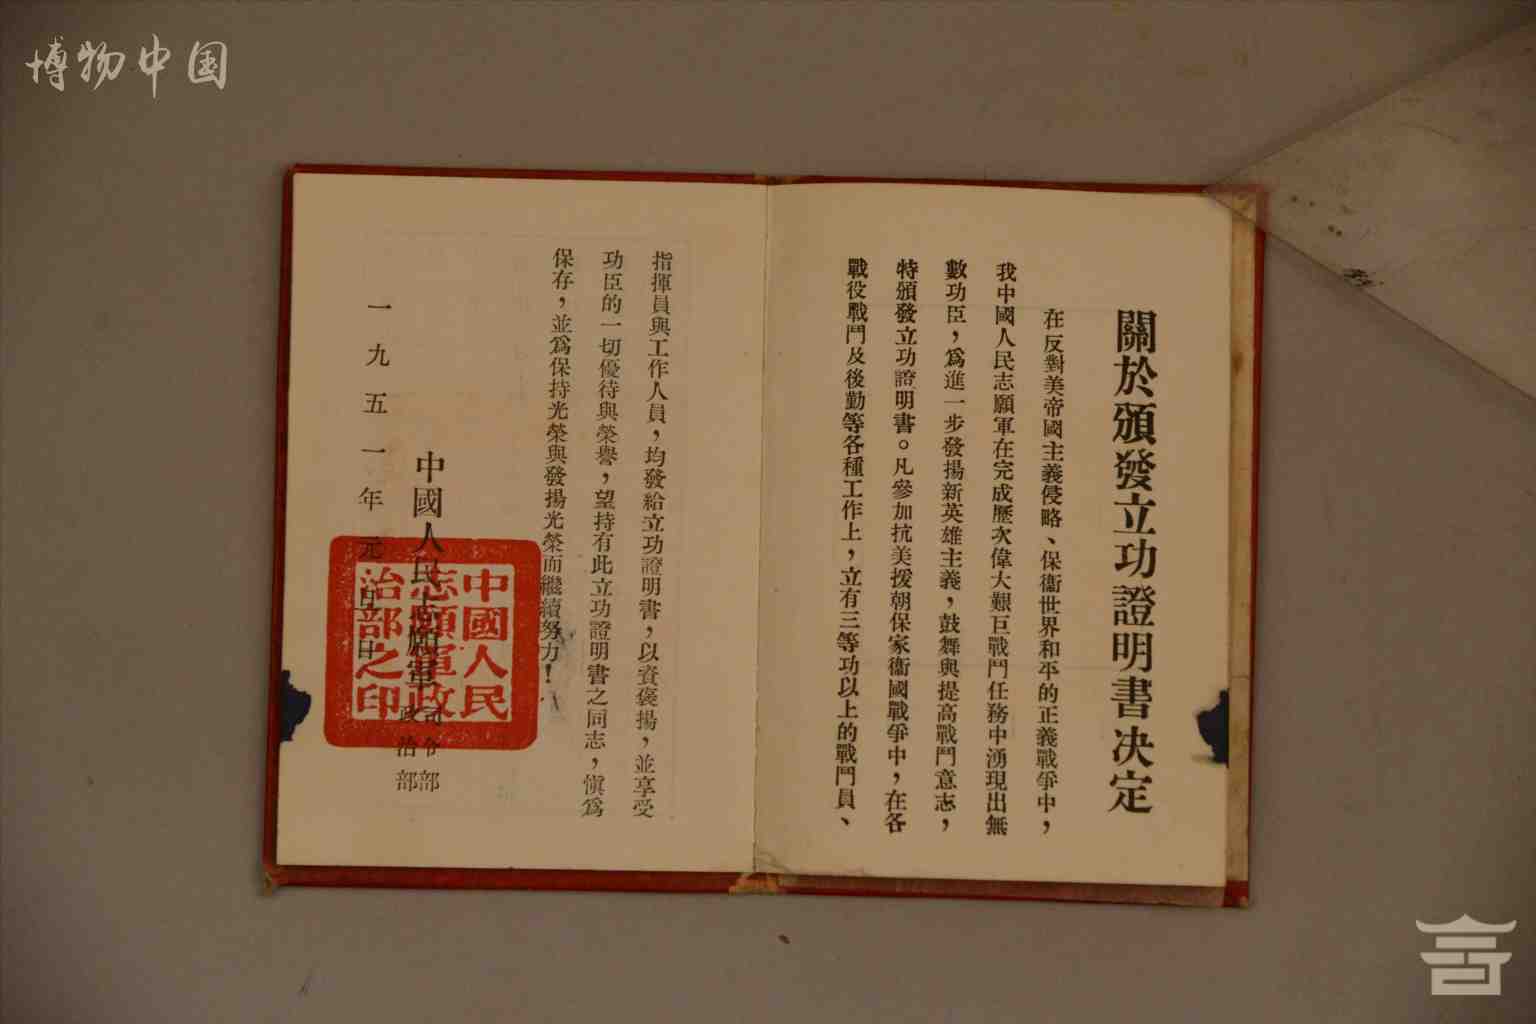 博物中国
關於頒發立功證明書决定
在反對美帝國主義侵略、保衞世界和平的正義戰爭中，
我中國人民志願軍在完成歷次偉大艱巨戰鬥任務中湧現出無
數功臣，爲進一步發揚新英雄主義，鼓舞與提高戰鬥意志，
特頒發立功證明書。凡參加抗美援朝保家衞國戰爭中，在各
戰役戰鬥及後勤等各種工作上，立有三等功以上的戰鬥員、
指揮員與工作人員，均發給立功證明書，以資褒揚，並享受
功臣的一切優待與榮譽，望持有此立功證明書之同志，愼爲
保存，並爲保持光榮與發揚光榮而繼續努力！
中國人民志願軍
司令部
政治部
一九五一年元月 日
中國人民
志願軍政
治部之印